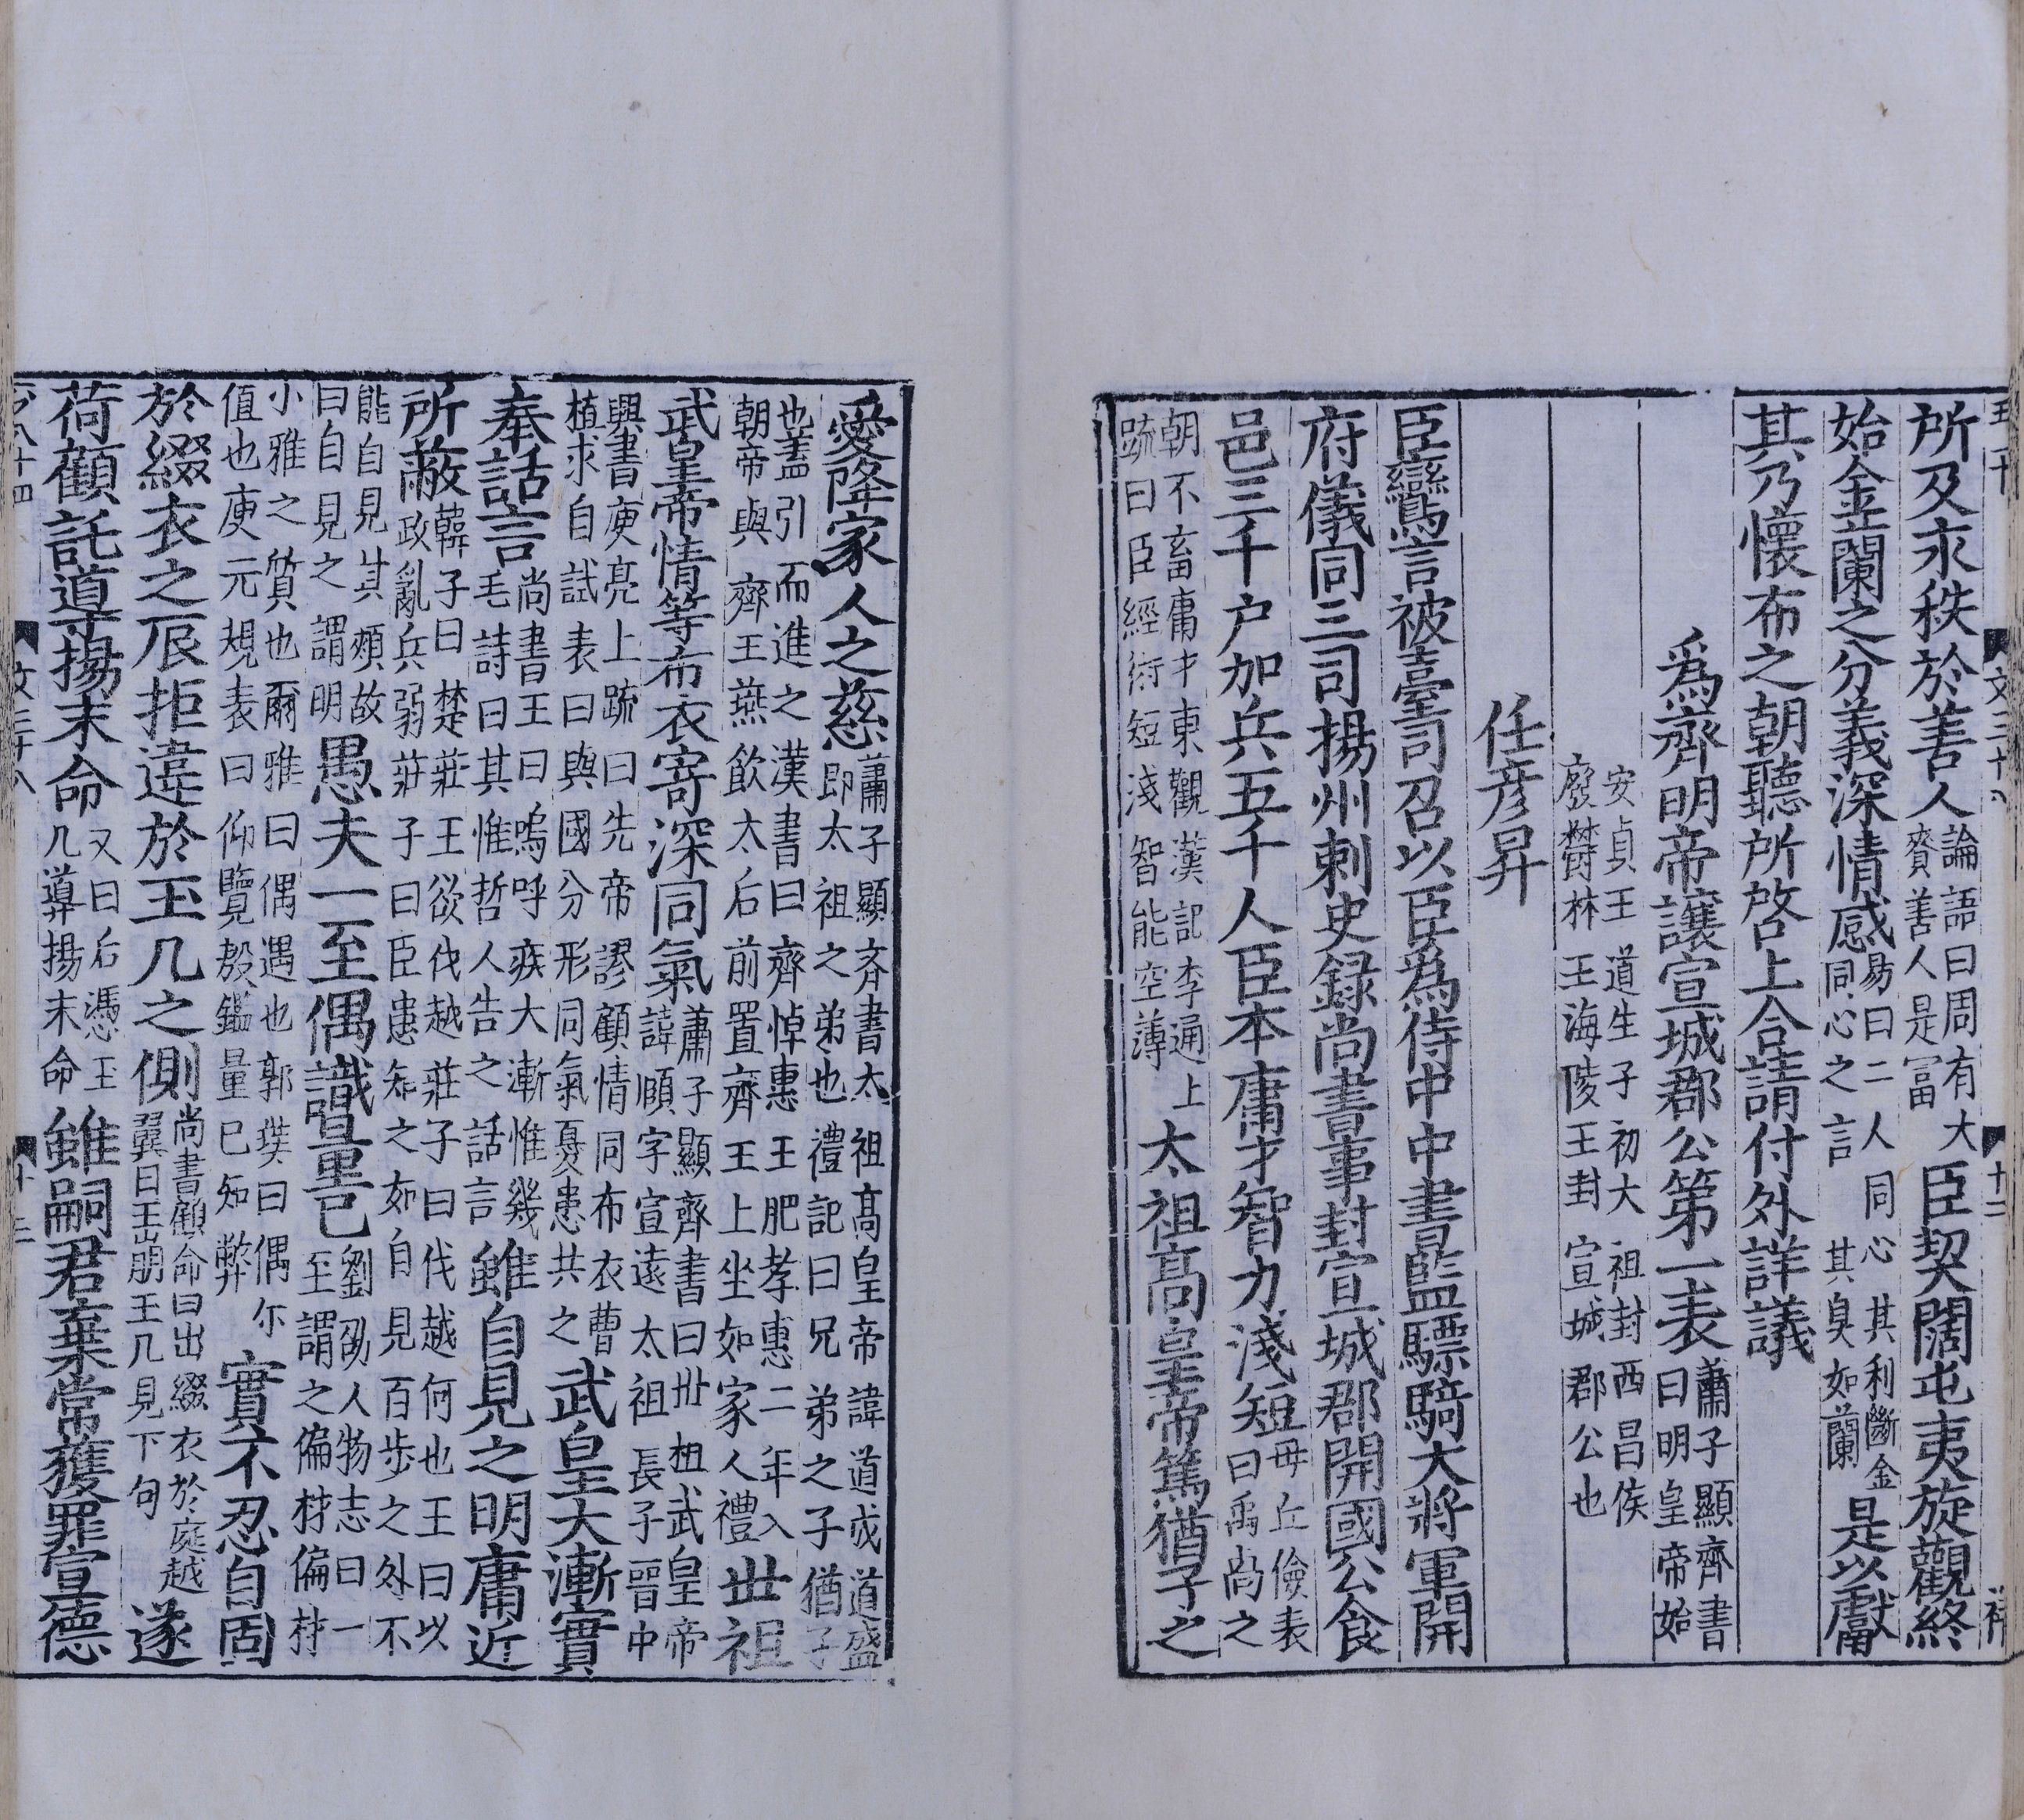 所及永秩於善人論語曰周有大賚善人是富臣契闊屯夷旋觀終
始金蘭之分義深情感易曰二人同心其利斷金同心之言其臭如蘭是以獻
其乃懷布之朝聽所啓上合請付外詳議
爲齊明帝讓宣城郡公第一表蕭子顯齊書曰明皇帝始
安貞王道生子初太祖封西昌侯廢鬱林王海陵王封宣城郡公也
任彦昇
臣鸞言被臺司召以臣爲侍中中書監驃騎大將軍開
府儀同三司揚州刺史録尚書事封宣城郡開國公食
邑三千户加兵五千人臣本庸才智力淺短毋丘儉表曰禹卨之
朝不畜庸才東觀漢記李通上疏曰臣經術短淺智能空薄太祖高皇帝篤猶子之
愛降家人之慈蕭子顯齊書太祖高皇帝諱道成道盛即太祖之弟也禮記曰兄弟之子猶子
也盖引而進之漢書曰齊悼惠王肥孝惠二年入朝帝與齊王燕飲太后前置齊王上坐如家人禮世祖
武皇帝情等布衣寄深同氣蕭子顯齊書曰世祖武皇帝諱賾字宣遠太祖長子晉中
興書庾亮上疏曰先帝謬顧情同布衣曹植求自試表曰與國分形同氣憂患共之武皇大漸實
奉話言尚書王曰嗚呼疾大漸惟幾毛詩曰其惟哲人告之話言雖自見之明庸近
所蔽韓子曰楚莊王欲伐越莊子曰伐越何也王曰以政亂兵弱莊子曰臣患知之如自見百步之外不
能自見其頰故曰自見之謂明愚夫一至偶識量已劉劭人物志曰一至謂之偏材偏材
小雅之質也爾雅曰偶遇也郭璞曰偶尔值也庾元規表曰仰覽殷鑑量已知弊實不忍自固
於綴衣之辰拒違於玉几之側尚書顧命曰出綴衣於庭越翼日王崩玉几見下句遂
荷顧託導揚末命又曰后憑玉几導揚末命雖嗣君棄常獲罪宣德